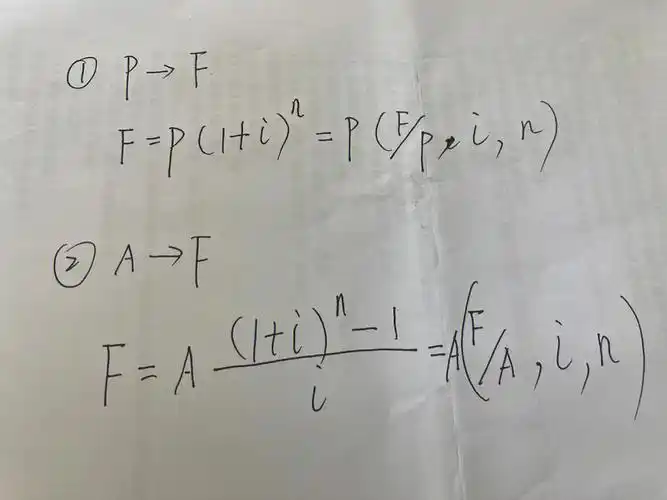 ① P → F
F = P (1+i)^n = P (F/P, i, n)
② A → F
F = A \frac{(1+i)^n - 1}{i} = A (F/A, i, n)